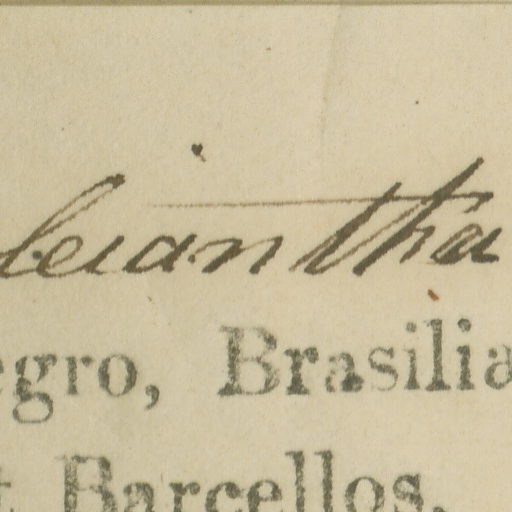 leiantha
egro, Brasilia
t Barcellos,